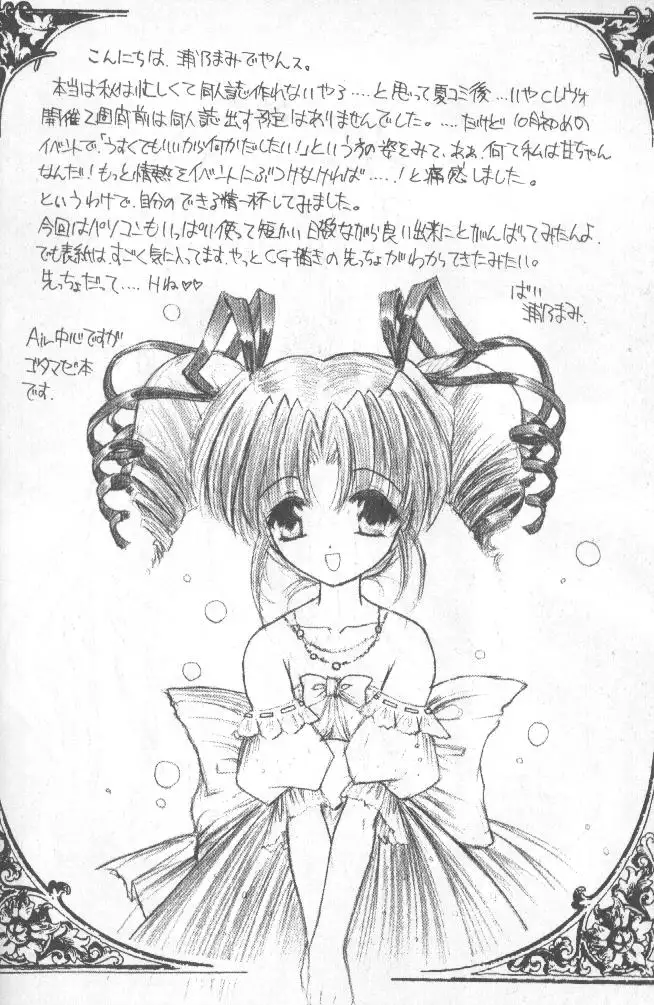 こんにちは、浦乃まみでやんス。
本当は私は忙しくて同人誌作れないやろ……と思って夏コミ後……いやCレヴォ
開催2週間前は同人誌出す予定はありませんでした。……だけど10月初めの
イベントで、「うすくてもいいから何かだしたい!」という方の姿をみて、あぁ、何て私は甘ちゃん
なんだ!もっと情熱をイベントにぶつけなければ……!と痛感しました。
というわけで、自分のできる精一杯してみました。
今回はパソコンもいっぱい使って短かい日数ながら良い出来にとがんばってみたんよ、
でも表紙は、すごく気に入ってます。やっとCG描きの先っちょがわかってきたみたい。
先っちょだって……Hね♡♡
ばい
浦乃まみ
Air中心ですが
ゴタマゼ本
です。